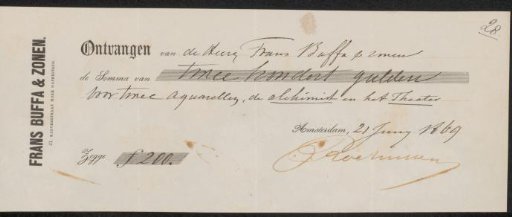 28
FRANS BUFFA & ZONEN.
Ontvangen van de Heeren Frans Buffa & zonen
de Somma van twee honderd gulden
voor twee aquarellen, de alchimist en het Theater
Amsterdam, 21 Juny 1869
Zegge ƒ 200.